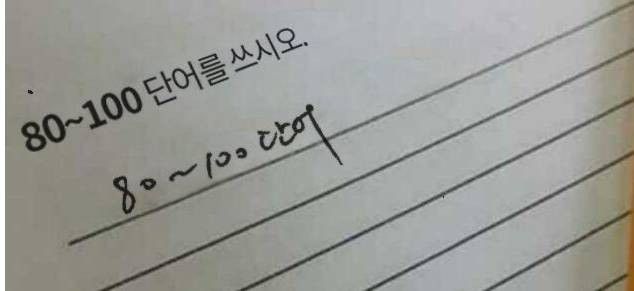 80~100 단어를 쓰시오.
80~100 단어